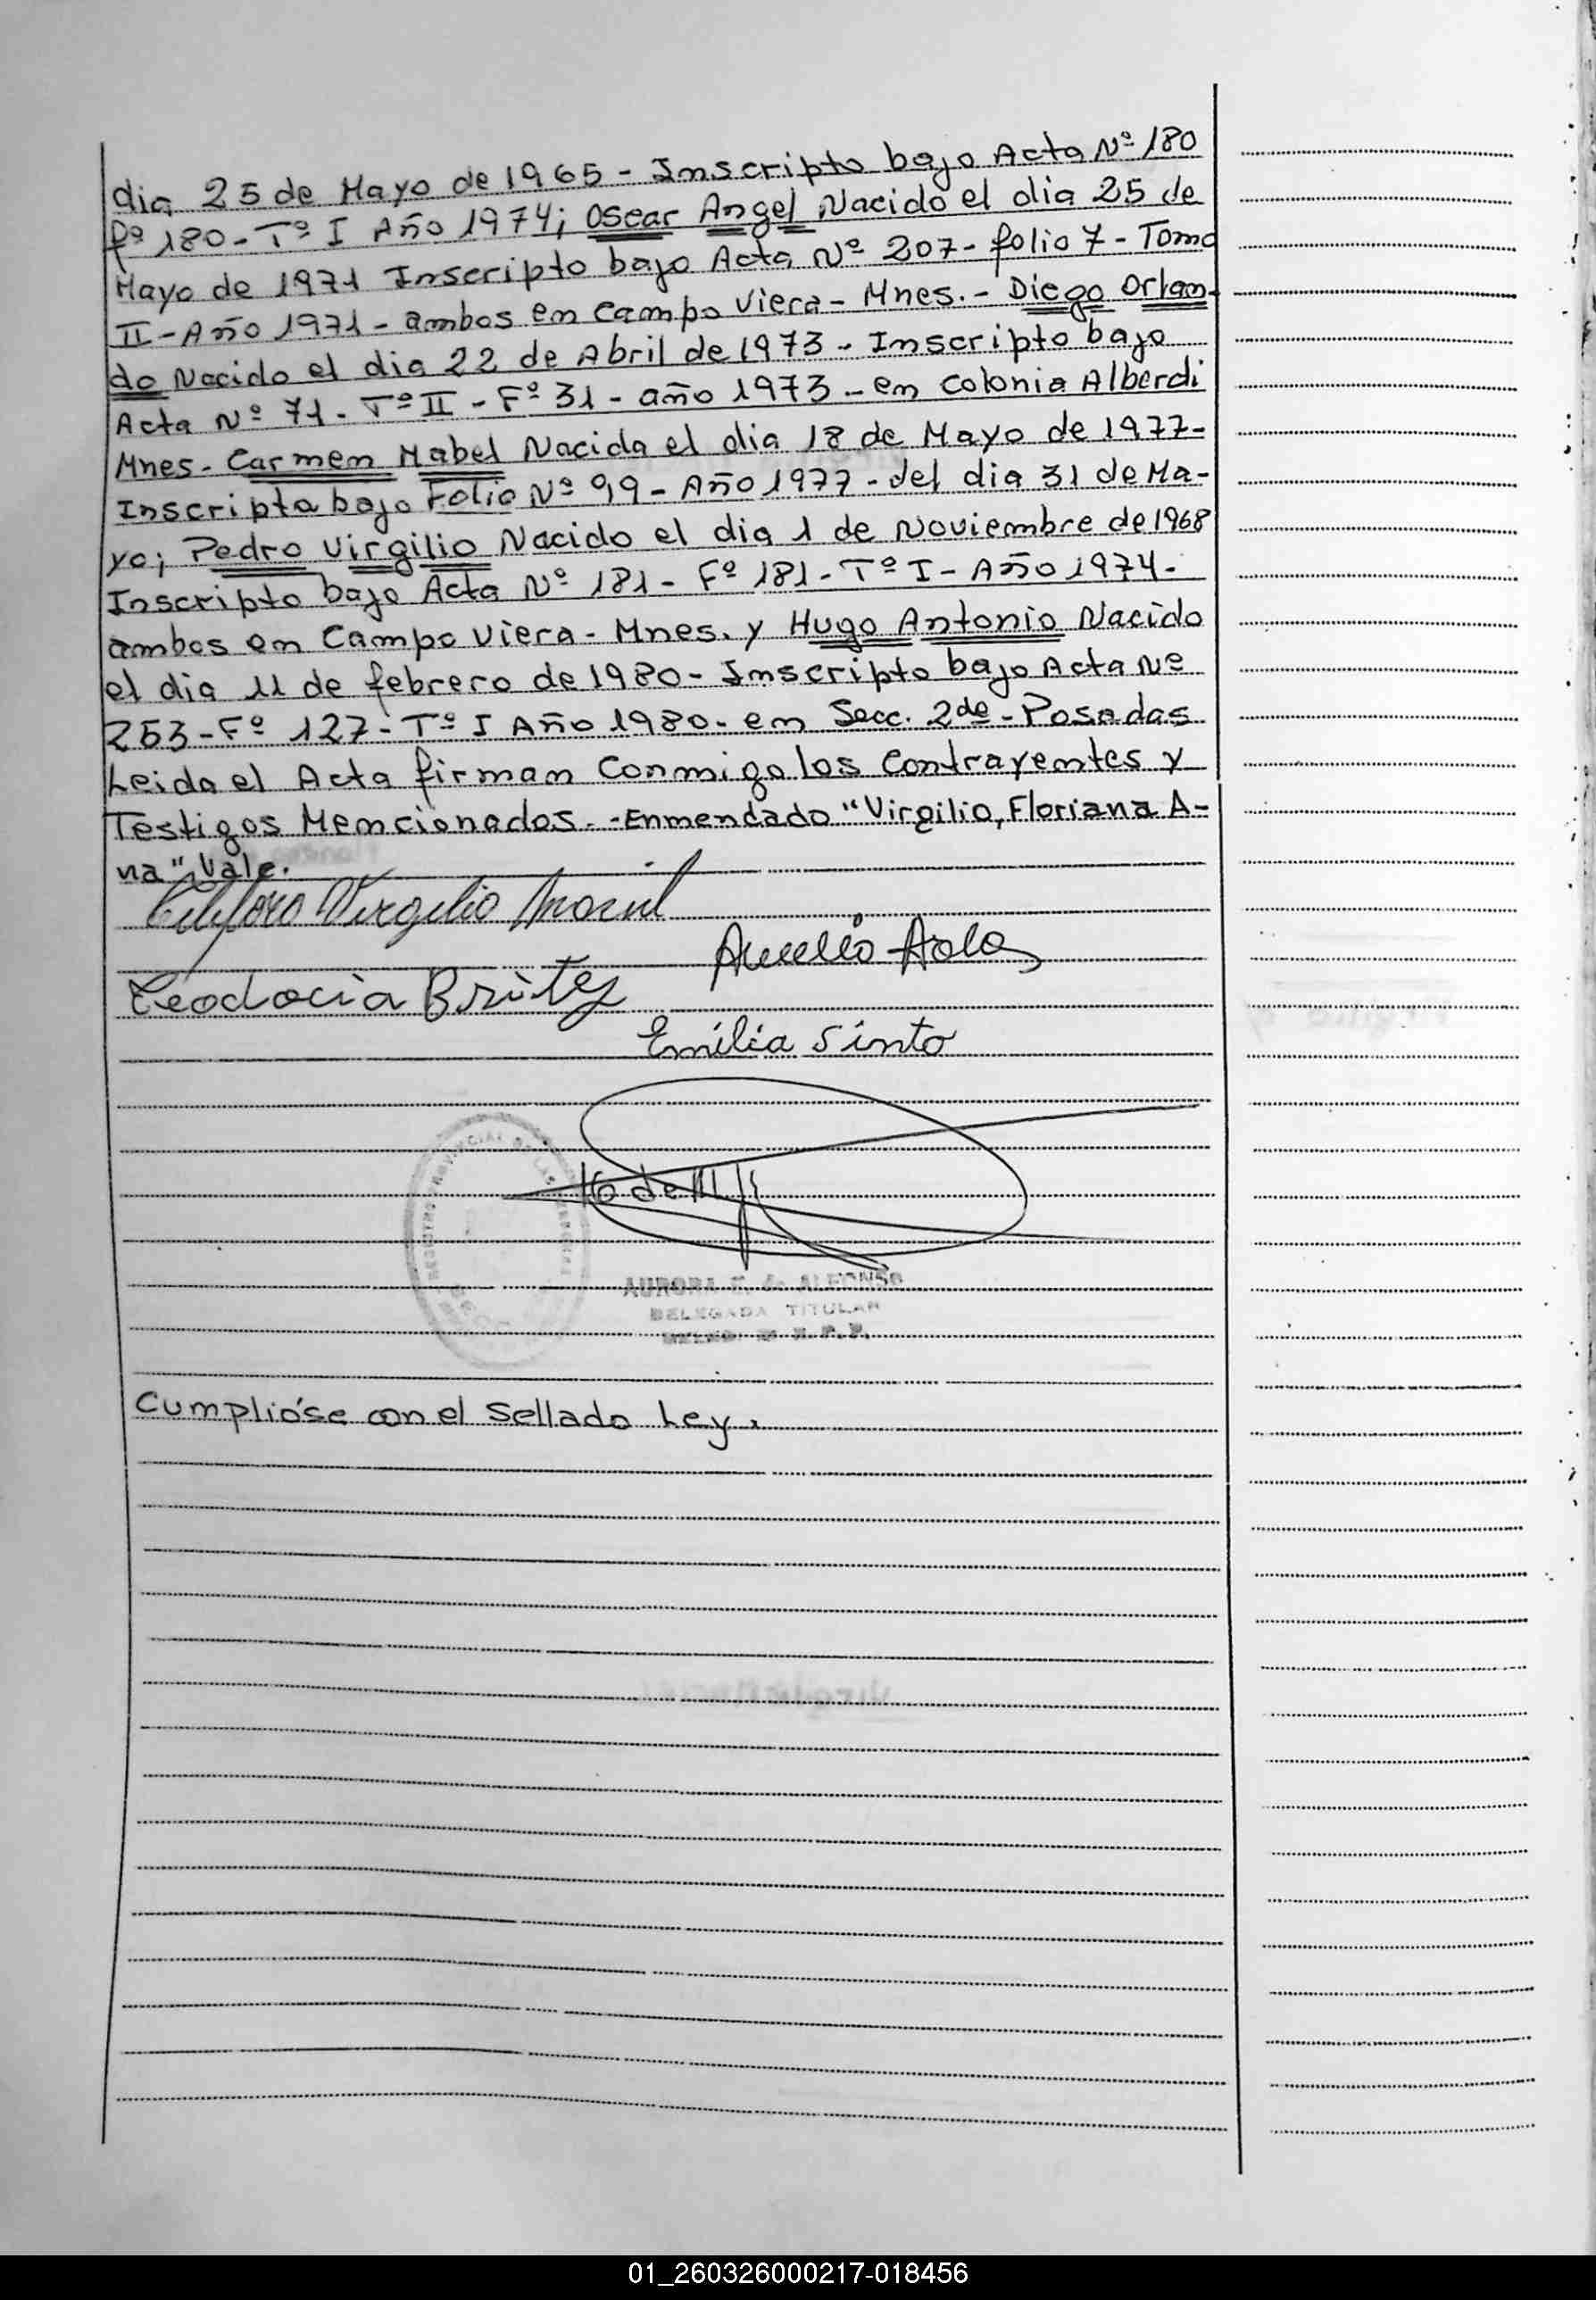 dia 25 de Mayo de 1965 - Inscripto bajo Acta Nº 180
fº 180 - Tº I Año 1974; Oscar Angel Nacido el dia 25 de
Mayo de 1971 Inscripto bajo Acta Nº 207 - folio 7 - Tomo
II - Año 1971 - ambos en Campo Viera - Mnes. - Diego Orlan-
do Nacido el dia 22 de Abril de 1973 - Inscripto bajo
Acta Nº 71 - Tº II - Fº 31 - año 1973 - en Colonia Alberdi
Mnes - Carmen Mabel Nacida el dia 18 de Mayo de 1977 -
Inscripta bajo Folio Nº 99 - Año 1977 - del dia 31 de Ma-
yo; Pedro Virgilio Nacido el dia 1 de Noviembre de 1968
Inscripto bajo Acta Nº 181 - Fº 181 - Tº I - Año 1974 -
ambos en Campo Viera - Mnes. y Hugo Antonio Nacido
el dia 11 de febrero de 1980 - Inscripto bajo Acta Nº
253 - Fº 127 - Tº I Año 1980 - en Secc. 2da - Posadas
Leida el Acta firman Conmigo los Contrayentes y
Testigos Mencionados. - Enmendado "Virgilio, Floriana A-
na" Vale.
Virgilio
Aurelio
Teodocia Britez
Emilia Pinto
AURORA E. de ALFONSO
DELEGADA TITULAR
Cumplióse con el Sellado Ley.
01_260326000217-018456